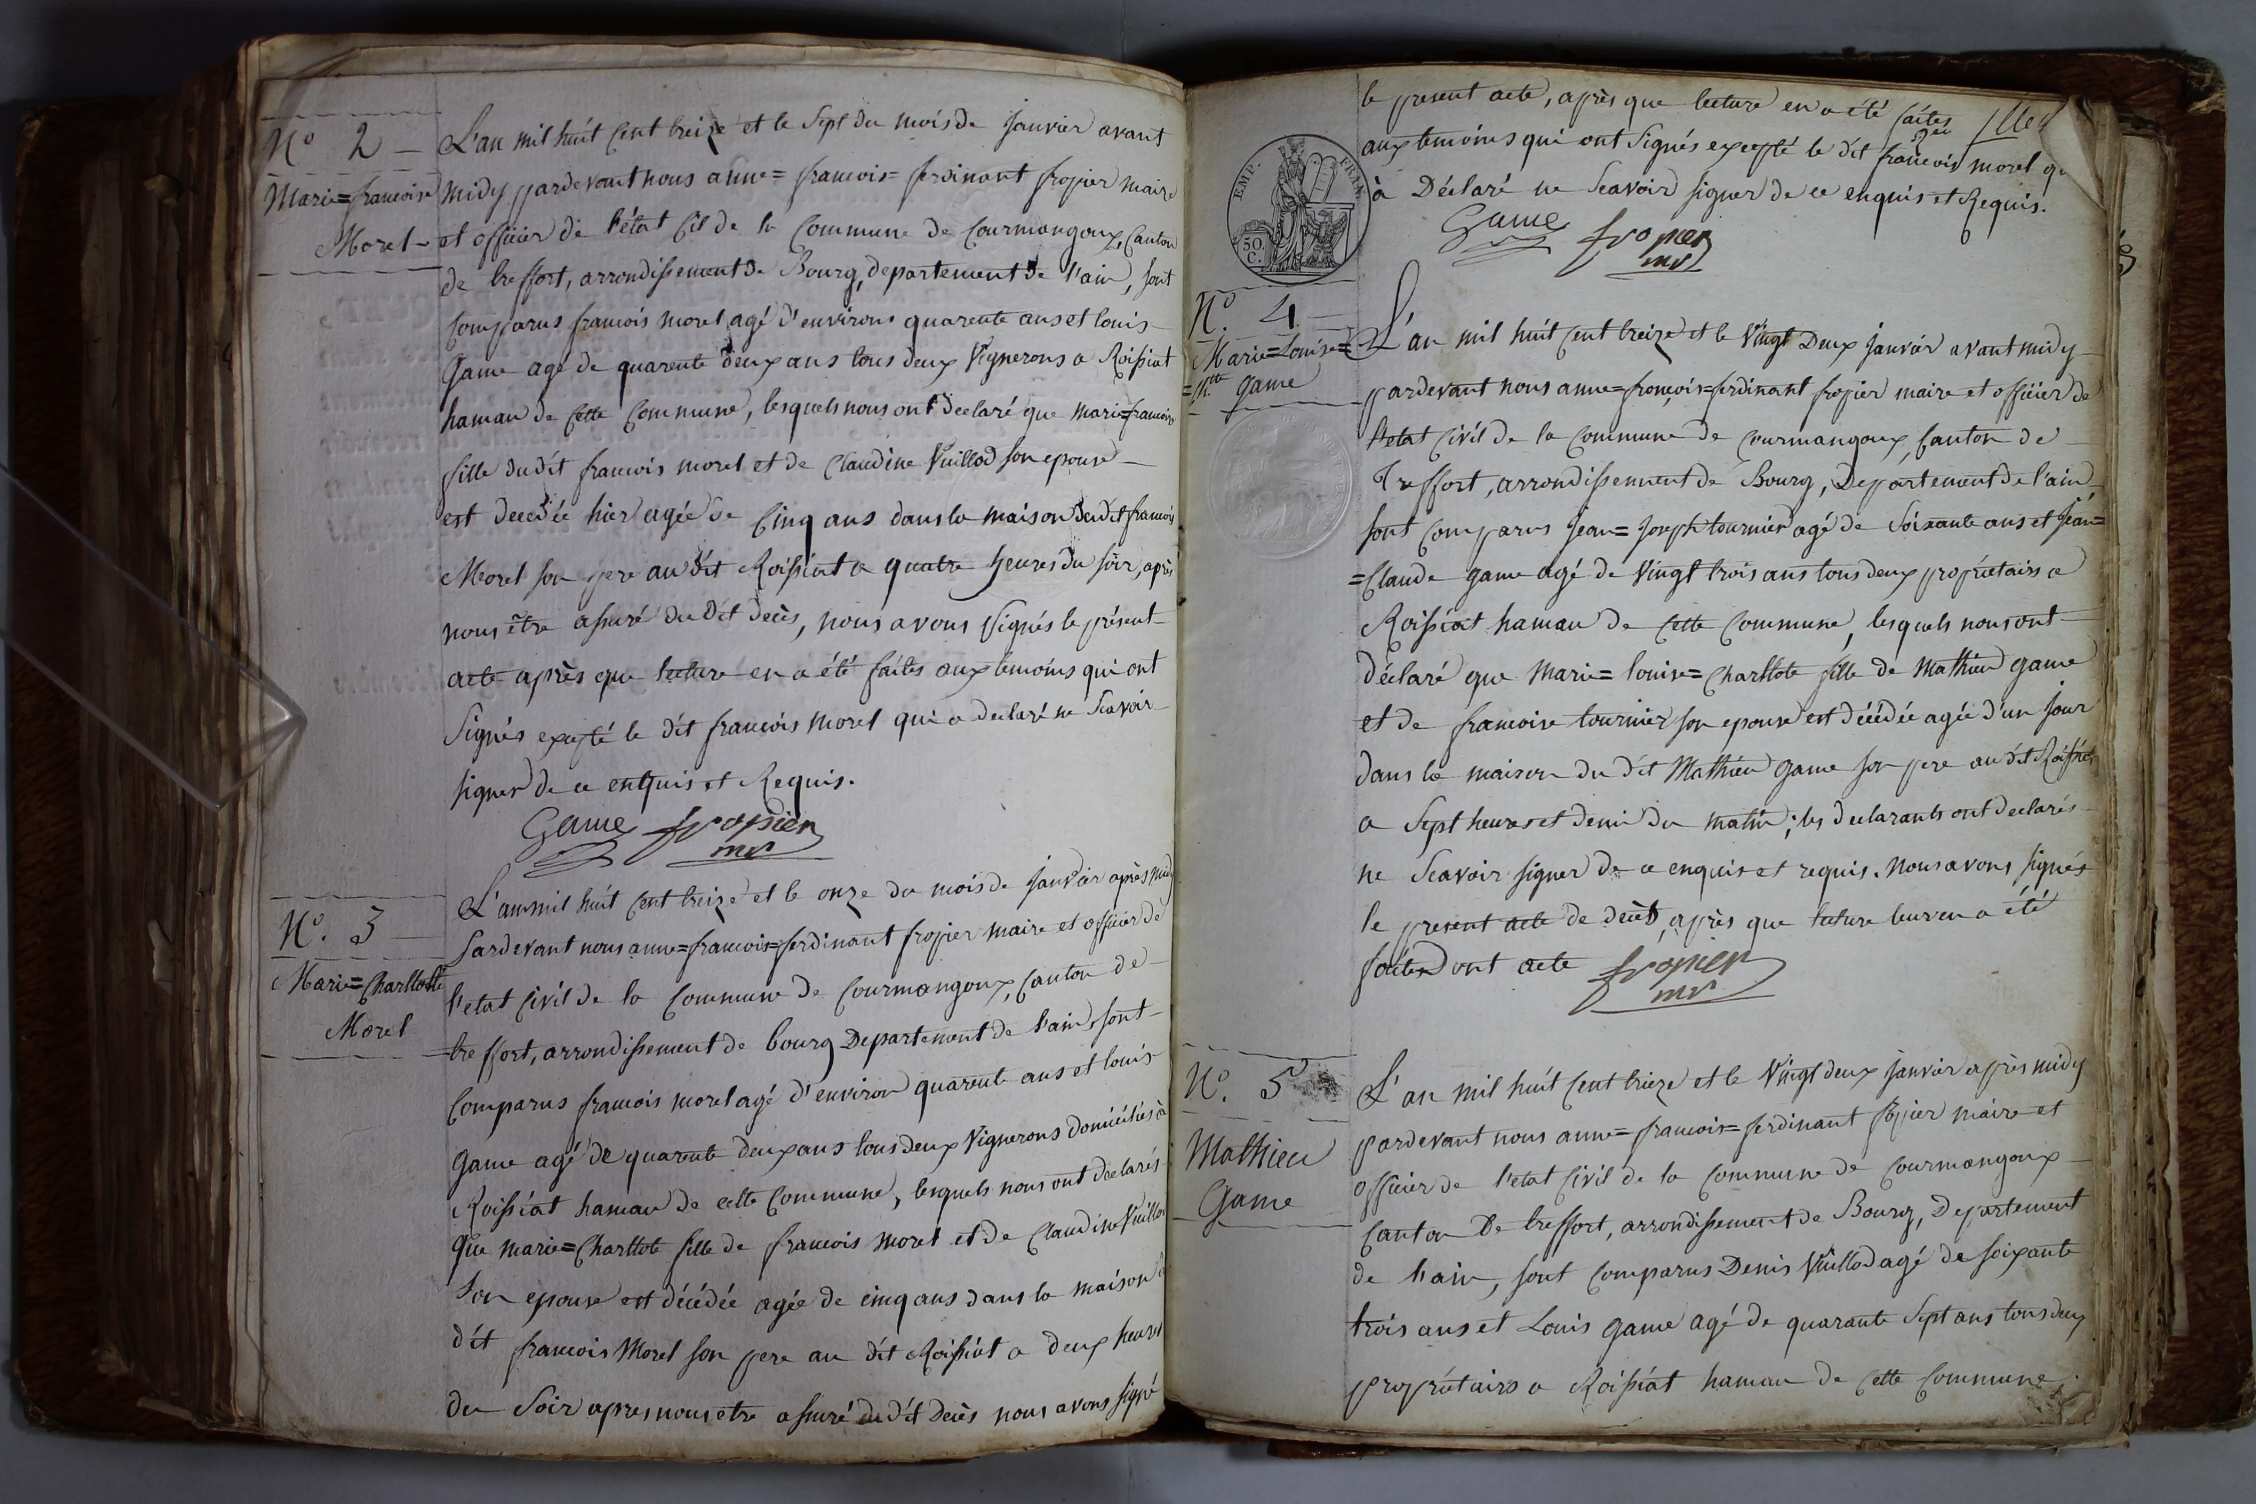 N.º 2
Marie=francoise
Morel
L'an mil huit Cent treize et le Sept du mois de janvier avant
midy pardevant nous anne=francois=ferdinant fropier maire
et officier de l'état Cil de la Commune de Courmangoux, Canton
de treffort, arrondissement de Bourg, departement de l'ain, sont
Comparus francois morel agé d'environs quarente ans et louis
Game agé de quarente deux ans tous deux Vignerons a Roissiat
hamau de Cette Commune, lesquels nous ont declaré que marie=francoise
fille du dit francois morel et de Claudine Vuillod son epouse
est decedée hier agée de Cinq ans dans la maison du dit francois
Morel son pere au dit Roissiat a quatre heures du soir, après
nous être assuré du dit decès, nous avons signés le présent
acte après que lecture en a été faites aux temoins qui ont
Signés excepté le dit francois morel qui a declaré ne Scavoir
signer de ce enquis et Requis.
Game fropier
mre
N.º 3
Marie=Charllotte
Morel
L'an mil huit Cent treize et le onze du mois de janvier après midy
Pardevant nous anne=francois=ferdinant fropier maire et officier de
l'etat Civil de la Commune de Courmangoux, Canton de
treffort, arrondissement de bourg Departement de l'ain, sont
Comparus francois morel agé d'environ quarente ans et louis
Game agé de quarente deux ans tous deux Vignerons domiciliés à
Roissiat hamau de cette Commune, lesquels nous ont declarés
Que marie=Charllote fille de francois morel et de Claudine Vuillod
Son epouse est décédée agée de cinq ans dans la maison
dit francois Morel son pere au dit Roissiat a deux heures
du Soir apres nous etre assuré du dit Decès nous avons signé
le present acte, après que lecture en a été faites
aux temoins qui ont Signés excepté le dit francois morel qui
à Déclaré ne Scavoir signer de ce enquis et Requis.
Game fropier
mre
TIMP. FRAN.
50.
C.
N.º 4
Marie=Louise=
=Ch.tte game
L'an mil huit Cent treize et le Vingt Deux janvier avant midy
pardevant nous anne=françois=ferdinant fropier maire et officier de
l'etat Civil de la Commune de Courmangoux, Canton de
Treffort, arrondissement de Bourg, Departement de l'ain
sont Comparus Jean=Joseph tournier agé de Soixante ans et Jean=
=Claude game agé de Vingt trois ans tous deux propriétairs a
Roissiat hamau de Cette Commune, lesquels nous ont
déclaré que Marie=louise=Charllote fille de Mathieu game
et de francoise tournier son epouse est décédée agée d'un jour
dans la maison du dit Mathieu game son pere au dit Roissiat
a Sept heures et demi du matin; les declarants ont declarés
ne Scavoir signer de ce enquis et requis. Nous avons signés
le present acte de decès, après que lecture leur en a été
faites dont acte fropier
mre
N.º 5
Mathieu
Game
L'an mil huit Cent trieze et le Vingt deux janvier après midy
pardevant nous anne=francois=ferdinant fropier maire et
officier de l'etat Civil de la Commune de Courmangoux
Canton De treffort, arrondissement de Bourg, Departement
de l'ain, sont Comparus Denis Vuillod agé de soixante
trois ans et Louis game agé de quarante Sept ans tous deux
propriétairs a Roissiat hamau de Cette Commune